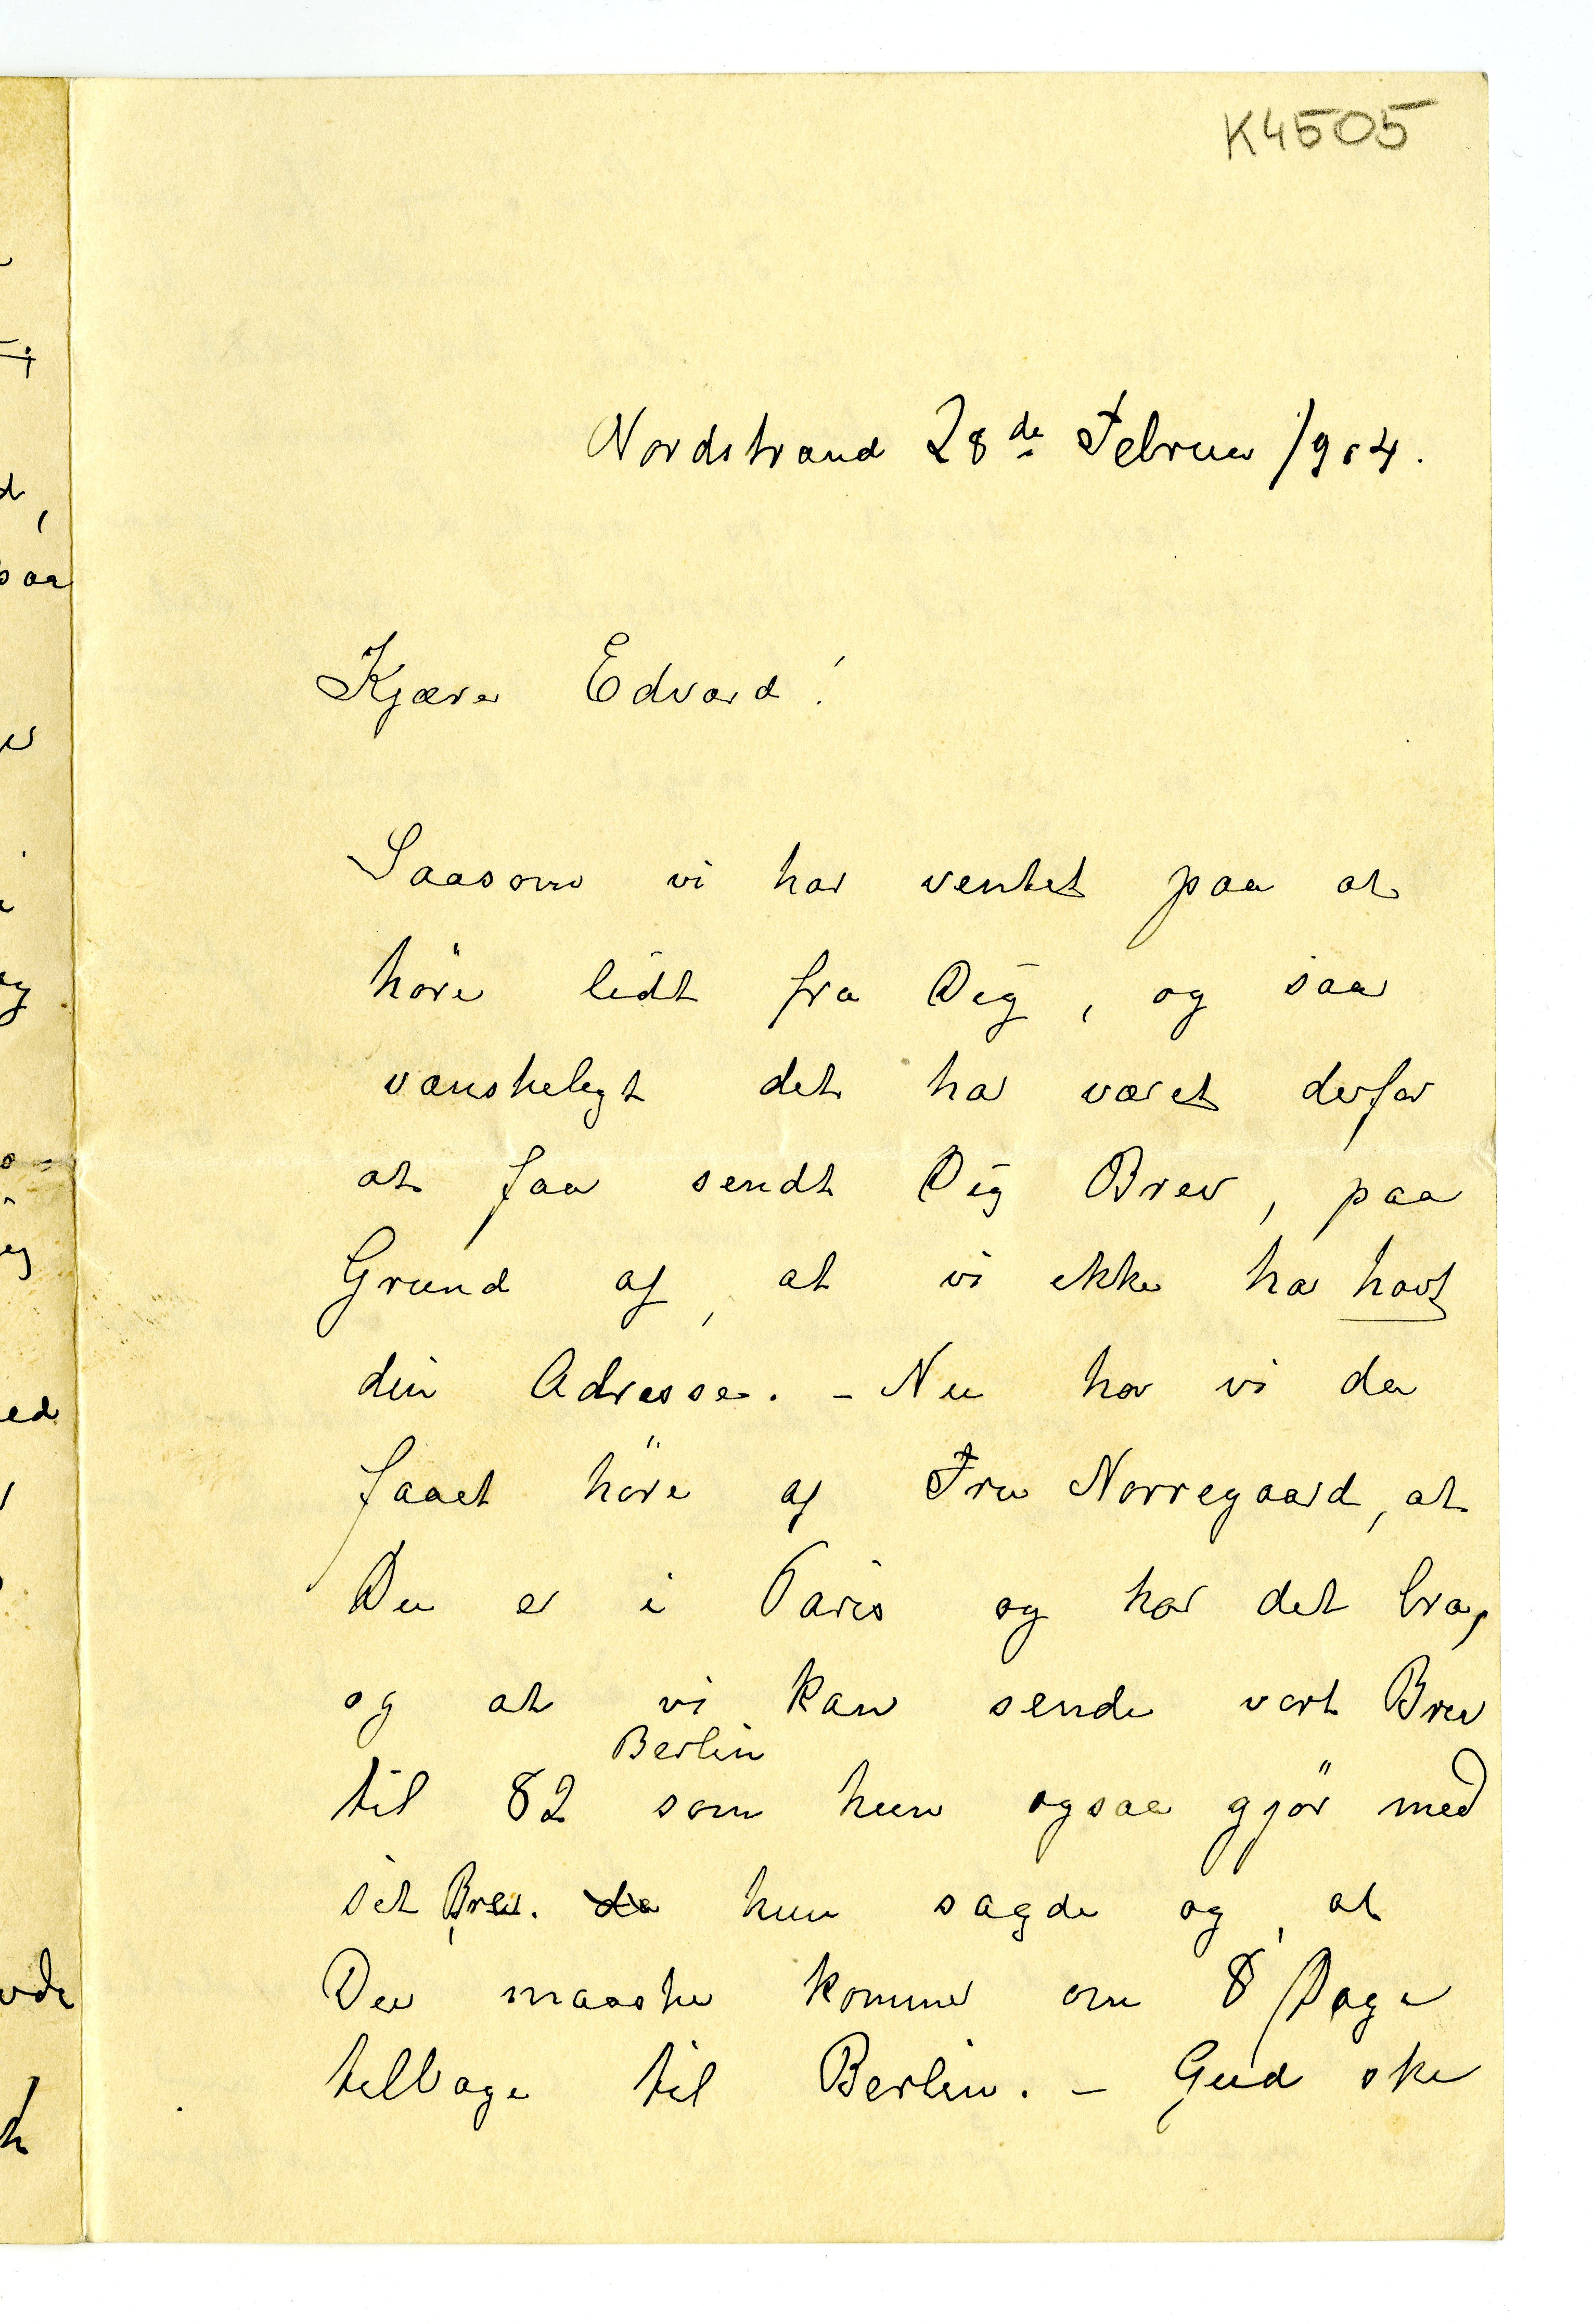 K4505
Nordstrand 28de Februar 1904.
Kjære Edvard!
Saasom vi har ventet paa at
höre lidt fra Dig, og saa
vanskeligt det har været derfor
at faa sendt Dig Brev, paa
Grund af, at vi ikke ha havt
din Adresse. – Nu har vi da
faaet höre af Fru Norregaard, at
Du er i Paris og har det bra,
og at vi kan sende vort Brev
Berlin
til 82 som hun ogsaa gjör med
sit Brev. da hun sagde og, at
Du maaske kommer om 8 Dage
tilbage til Berlin. – Gud ske